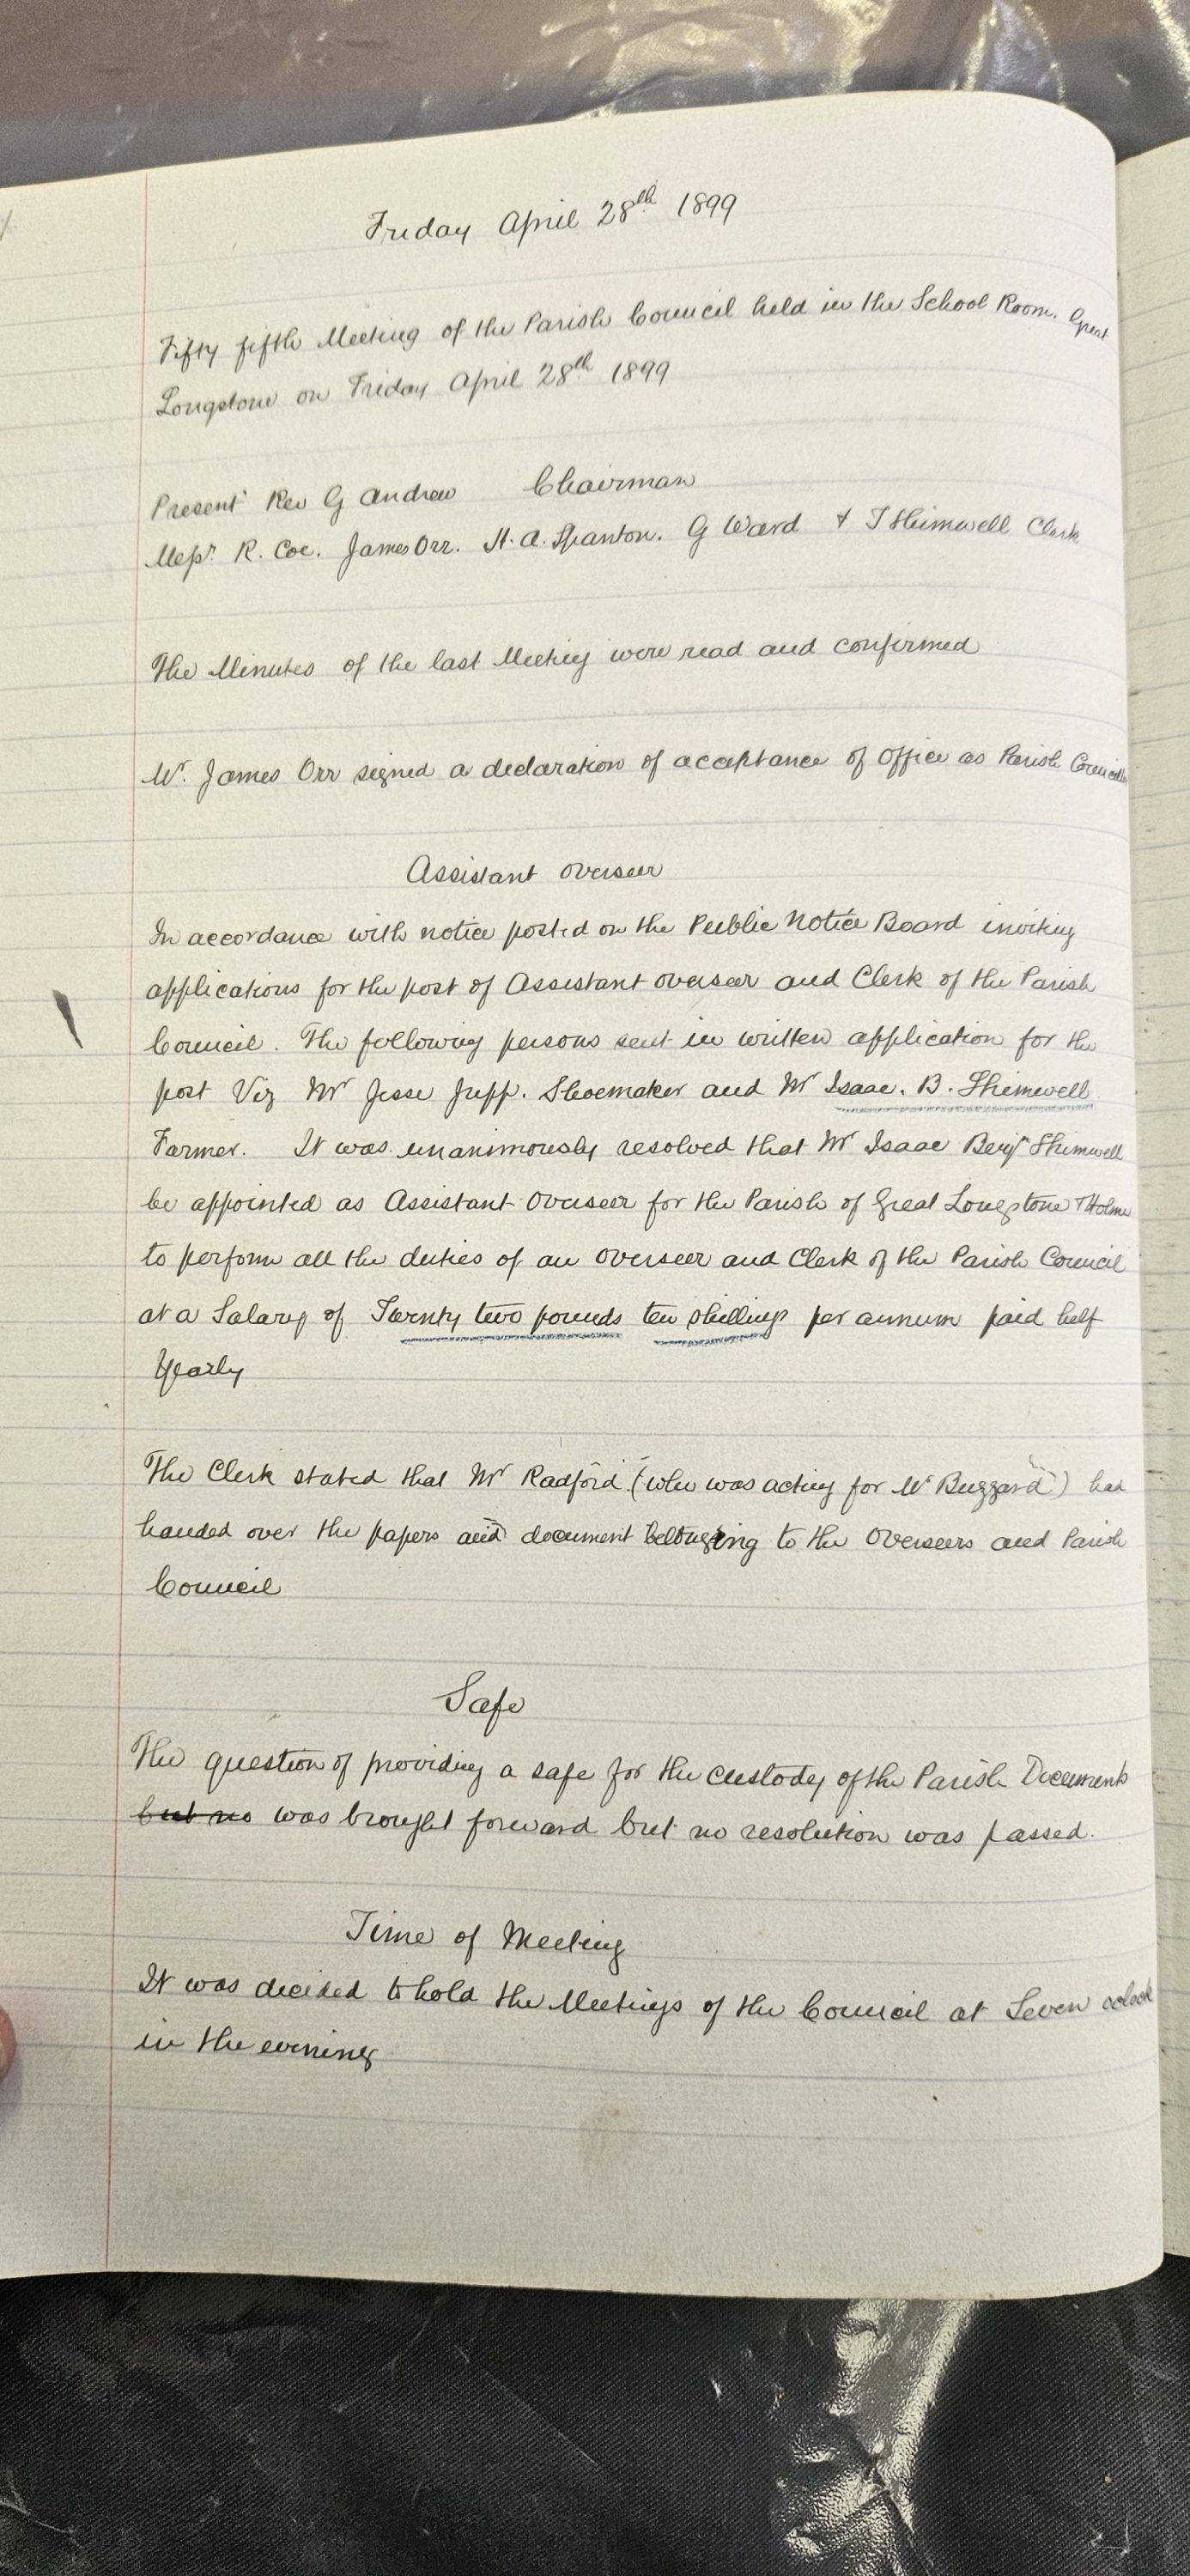 Friday April 28th 1899
Fifty fifth Meeting of the Parish Council held in the School Room. Great
Longstone on Friday April 28th 1899
Present Rev G Andrew Chairman
Messrs R. Coe. James Orr. H. A. Spanton. G Ward & T Shimwell Clerk
The Minutes of the last Meeting were read and confirmed
Mr. James Orr signed a declaration of acceptance of Office as Parish Councillor
Assistant Overseer
In accordance with notice posted on the Public Notice Board inviting
applications for the post of Assistant overseer and Clerk of the Parish
Council. The following persons sent in written application for the
post Viz Mr Jesse Jupp. Shoemaker and Mr Isaac. B. Shimwell
Farmer. It was unanimously resolved that Mr Isaac Benjn Shimwell
be appointed as Assistant Overseer for the Parish of Great Longstone & Holme
to perform all the duties of an Overseer and Clerk of the Parish Council
at a Salary of Twenty two pounds ten shillings per annum paid half
Yearly
The Clerk stated that Mr Radford (who was acting for Mr Buggard) had
handed over the papers and document belonging to the Overseers and Parish
Council
Safe
The question of providing a safe for the custody of the Parish Documents
but no was brought forward but no resolution was passed.
Time of Meeting
It was decided to hold the Meetings of the Council at Seven oclock
in the evening